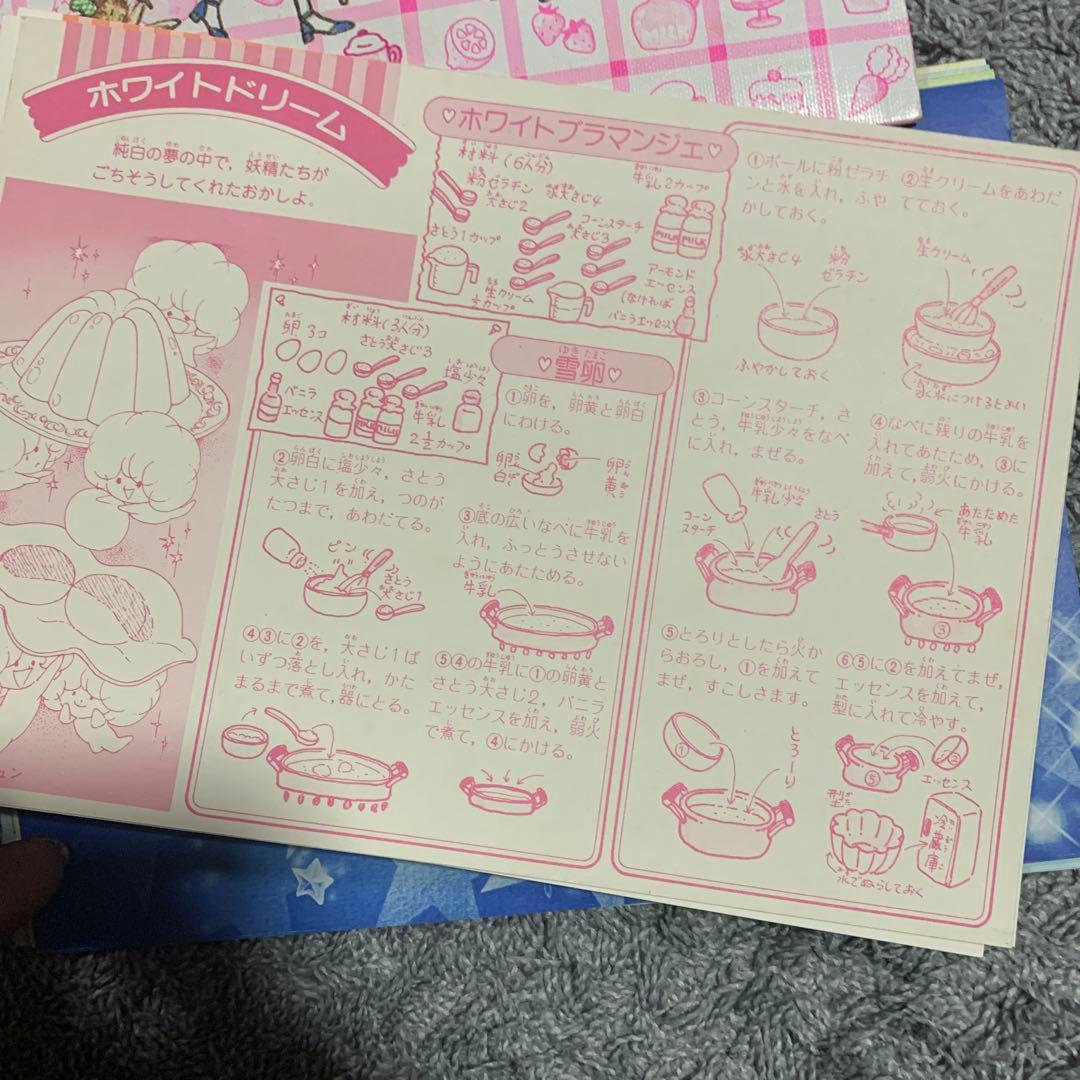 ホワイトドリーム
純白の夢の中で、妖精たちが
ごちそうしてくれたおかしよ。
♡ホワイトブラマンジェ♡
材料(6人分)
粉ゼラチン
大さじ2
水大さじ4
牛乳2カップ
コーンスターチ
大さじ3
さとう1カップ
MILK
MILK
生クリーム
½カップ
アーモンド
エッセンス
(なければ
バニラエッセンス)
①ボールに粉ゼラチ
ンと水を入れ,ふや
かしておく。
水大さじ4
粉
ゼラチン
ふやかしておく
②生クリームをあわだ
てておく。
生クリーム
氷水につけるとよい
③コーンスターチ,さ
とう,牛乳少々をなべ
に入れ,まぜる。
コーン
スターチ
牛乳少々
さとう
④なべに残りの牛乳を
入れてあたため,③に
加えて,弱火にかける。
あたためた
牛乳
③
⑤とろりとしたら火か
らおろし,①を加えて
まぜ,すこしさます。
①
とろーり
⑥⑤に②を加えてまぜ,
エッセンスを加えて,
型に入れて冷やす。
②
⑤
エッセンス
型
冷蔵庫
水でぬらしておく
♡雪卵♡
材料(3人分)
卵3コ
さとう大さじ3
塩少々
バニラ
エッセンス
MILK
MILK
牛乳
2½カップ
①卵を,卵黄と卵白
にわける。
卵白
卵黄
②卵白に塩少々,さとう
大さじ1を加え,つのが
たつまで,あわだてる。
ピン
さとう
大さじ1
③底の広いなべに牛乳を
入れ,ふっとうさせない
ようにあたためる。
牛乳
④③に②を,大さじ1ぱ
いずつ落とし入れ,かた
まるまで煮て,器にとる。
⑤④の牛乳に①の卵黄と
さとう大さじ2,バニラ
エッセンスを加え,弱火
で煮て,④にかける。
MILK